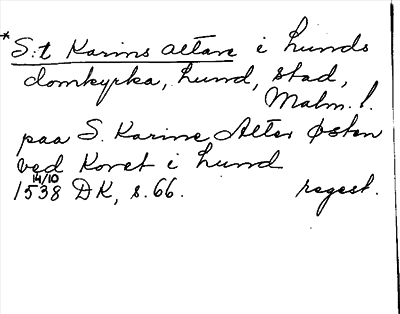 * S:t Karins altare i Lunds
domkyrka, Lund, stad,
Malm. l.
paa S. Karine Alter østen
ved Koret i Lund
14/10
1538 DK, s. 66. regest.